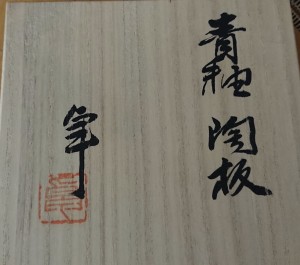 青釉 陶板